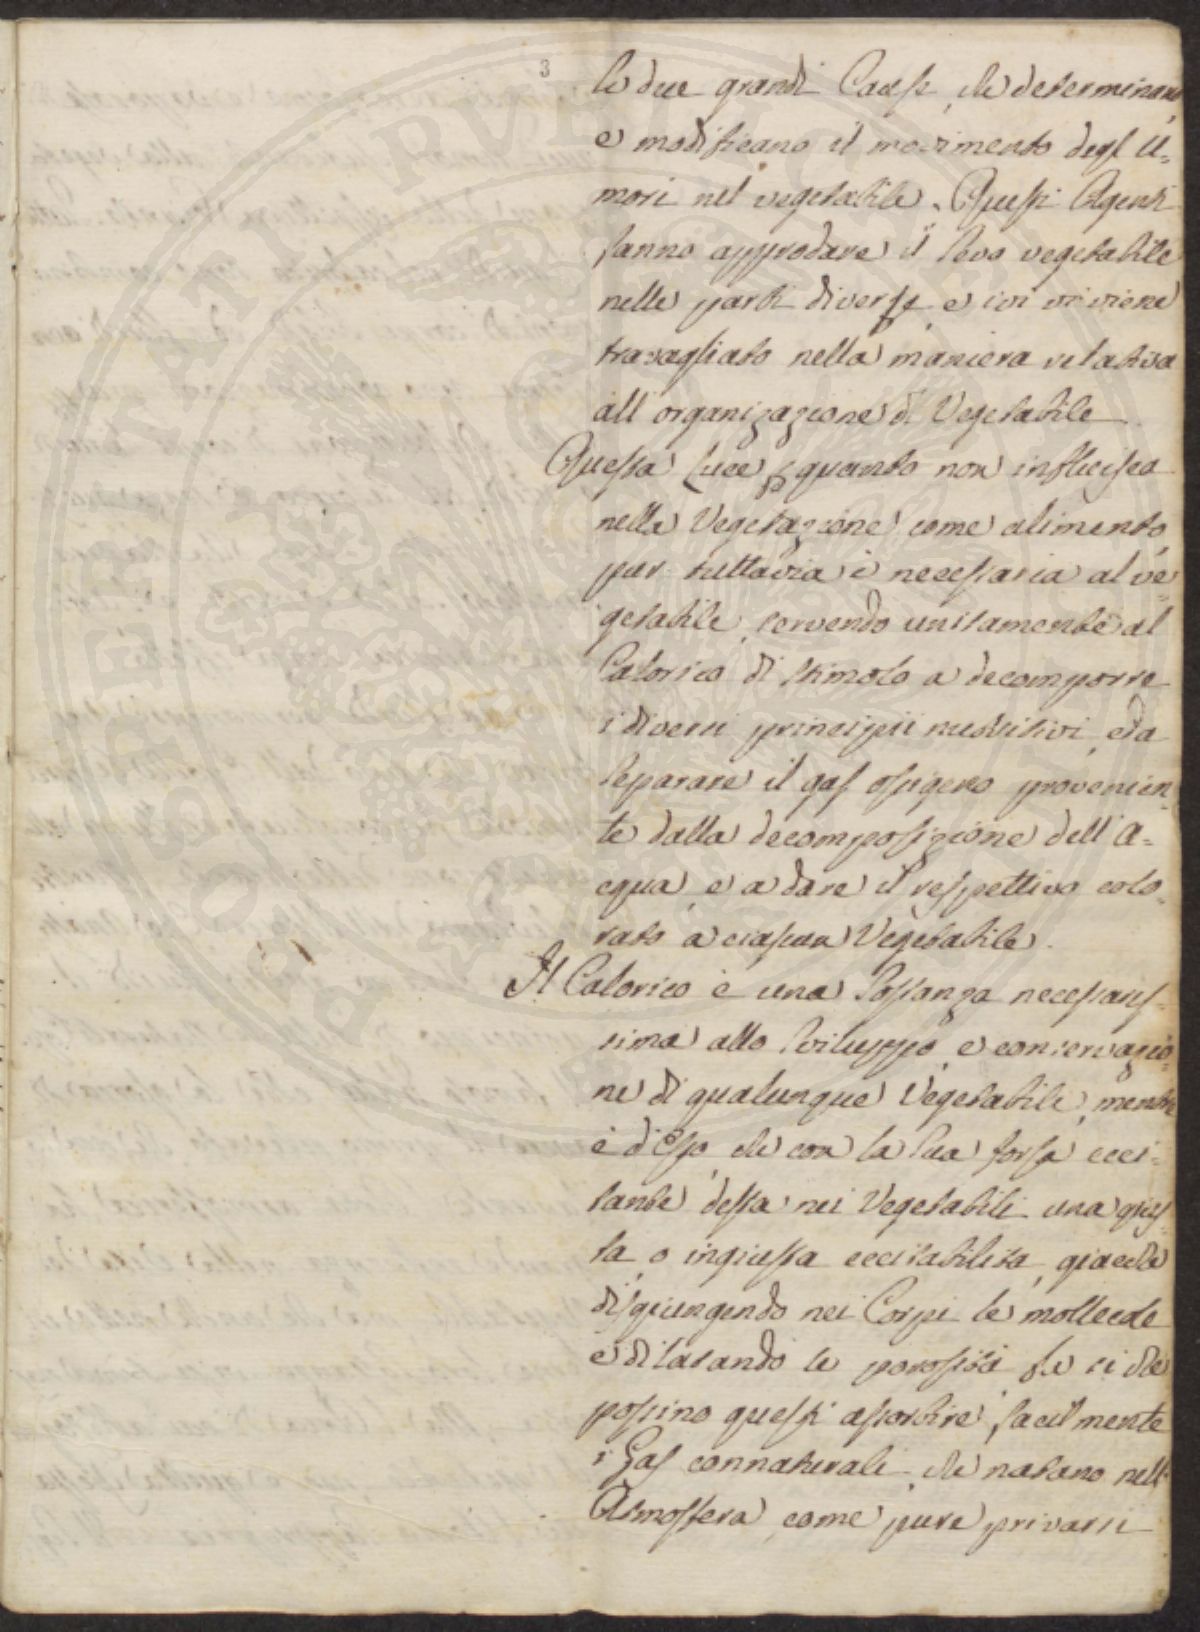 3
le due grandi Cause, che determinano
e modificano il movimento degl'u=
mori nel vegetabile. Questi Agenti
fanno approdare il sevo vegetabile
nelle parti diverse, e ivi vi viene
travagliato nella maniera relativa
all'organizazione di Vegetabile
Questa Luce, quanto non influisca
nella Vegetazione come alimento,
pur tuttavia è necessaria al ve=
getabile, servendo unitamente al
Calorico di stimolo a decomporre
i diversi principii nutritivi, ed a
separare il gas ossigeno provenien=
te dalla decomposizione dell'a=
cqua, e a dare il respettivo colo=
rato a ciascun Vegetabile.
Il Calorico è una Possanza necessaris=
sima allo Sviluppo, e conservazio=
ne di qualunque Vegetabile, mentre
è d'esso, che con la sua forsa ecci=
tante desta nei Vegetabili una gius=
ta o ingiusta eccitabilità, giacchè
disgiungendo nei Corpi le mollecole
e dilatando le porosità, fa si che
possino questi assorbire facilmente
i Gas connaturali, che natano nell'
Atmosfera, come pure privarsi